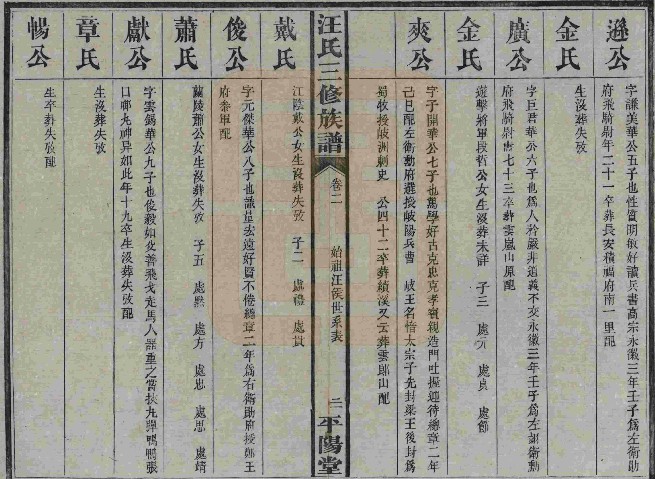 遜公
字謙美華公五子也性質明敏好讀兵書高宗永徽三年壬子爲左衛勛
府飛騎尉年二十一卒葬長安積福府南一里配
金氏
生沒葬失攷
廣公
字巨君華公六子也爲人矜嚴非道義不交永徽三年壬子爲左衛勳
府飛騎尉壽七十三卒葬雲嵐山原配
金氏
遊擊將軍段哲公女生沒葬未詳 子三 處元 處貞 處節
爽公
字子開華公七子也篤學好古克忠克孝賓親造門吐握延待總章二年
己巳配左衛勳府選授岐陽兵曹 岐王名怡太宗子先封梁王後封爲
蜀牧授岐洲刺史 公四十二卒葬績溪又云葬雲郎山配
汪氏三修族譜
卷二
始祖汪侯世系表
二
平陽堂
戴氏
江陰戴公女生沒葬失攷 子二 處禮 處貴
俊公
字元傑華公八子也識量宏遠好賢不倦總章二年爲右衛勛府授鄭王
府參軍配
蕭氏
蘭陵蕭公女生沒葬失攷 子五 處默 處方 處忠 處思 處靖
獻公
字雲錫華公九子也俊毅如父善飛弋走馬人器重之嘗挾九彈鴨鴨張
口啣丸神異如此年十九卒生沒葬失攷配
章氏
生沒葬失攷
暢公
生卒葬失攷配